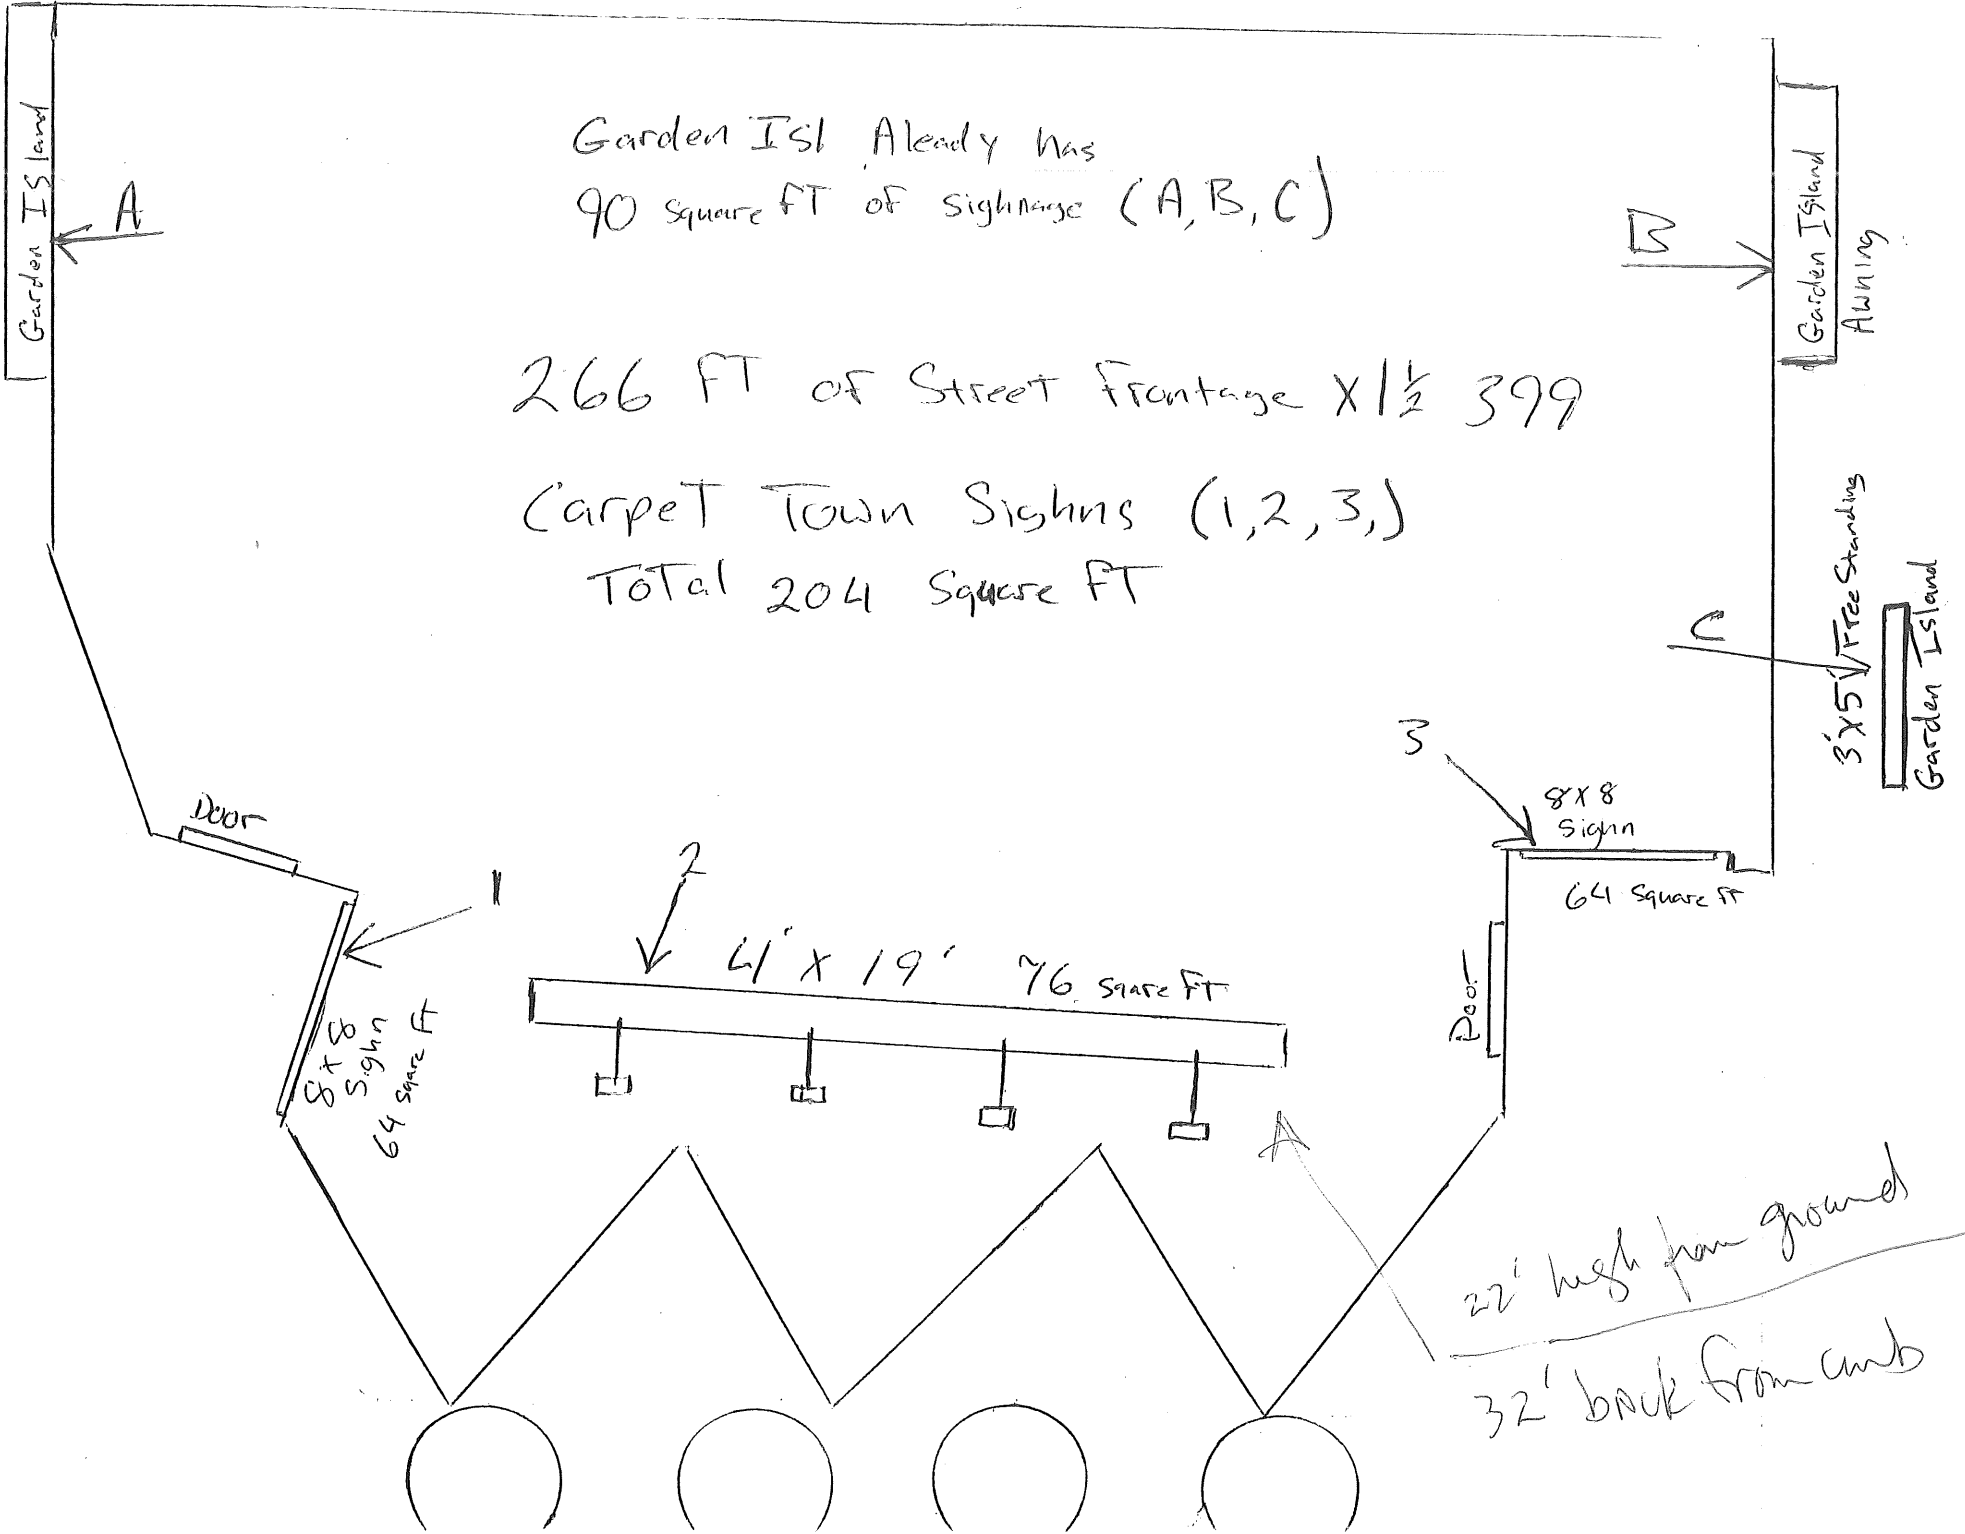 Garden ISland
A
Garden ISl Aleady has
90 square FT of sighnage (A, B, C)
B
Garden ISland
Awning
266 FT of Street Frontage X 1 1/2 399
Carpet Town Sighns (1,2,3,)
Total 204 Square FT
C
3'X5' Free Standing
Garden Island
3
8X8
Sighn
64 Square FT
Door
1
2
4' X 19' 76 Sqare FT
8X8
Sighn
64 Sqare FT
Door
22' high from ground
32' back from curb